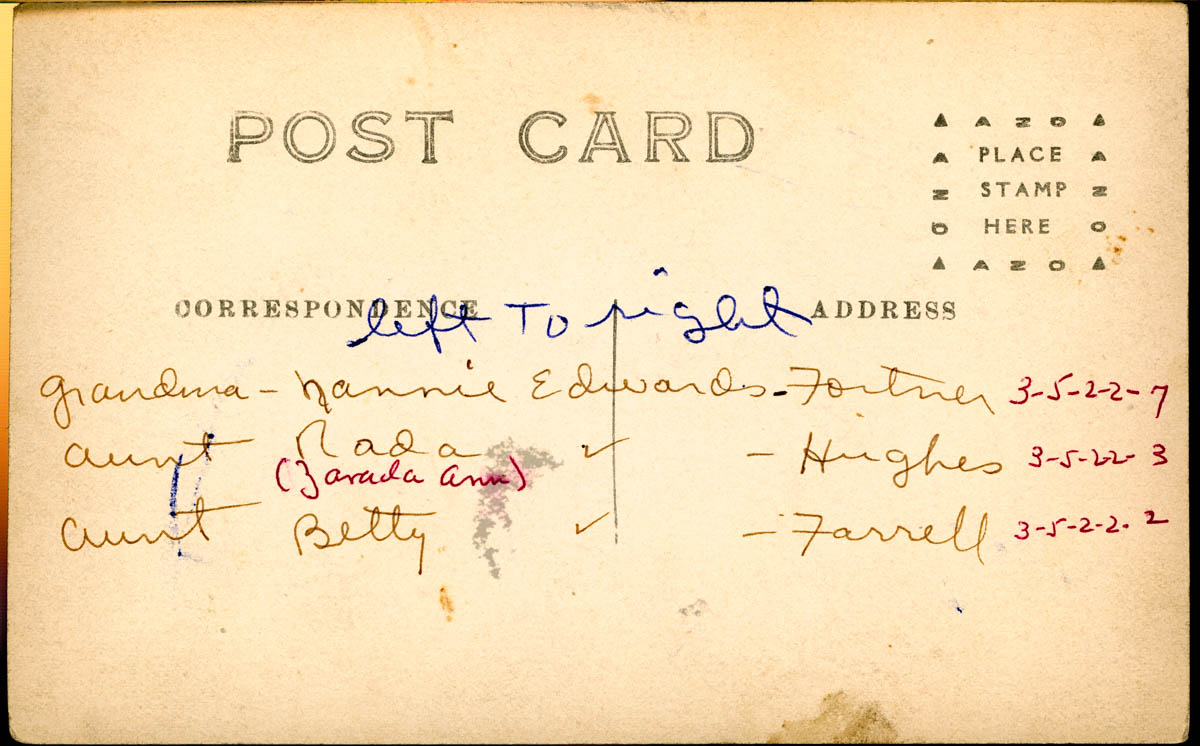 POST CARD
AZO
PLACE
STAMP
HERE
AZO
AZO
AZO
CORRESPONDENCE
ADDRESS
left To right
Grandma - Nannie Edwards - Fortner 3-5-2-2-7
aunt Rada ✓ - Hughes 3-5-22-3
(Zarada Ann)
aunt Betty ✓ - Farrell 3-5-2-2-2